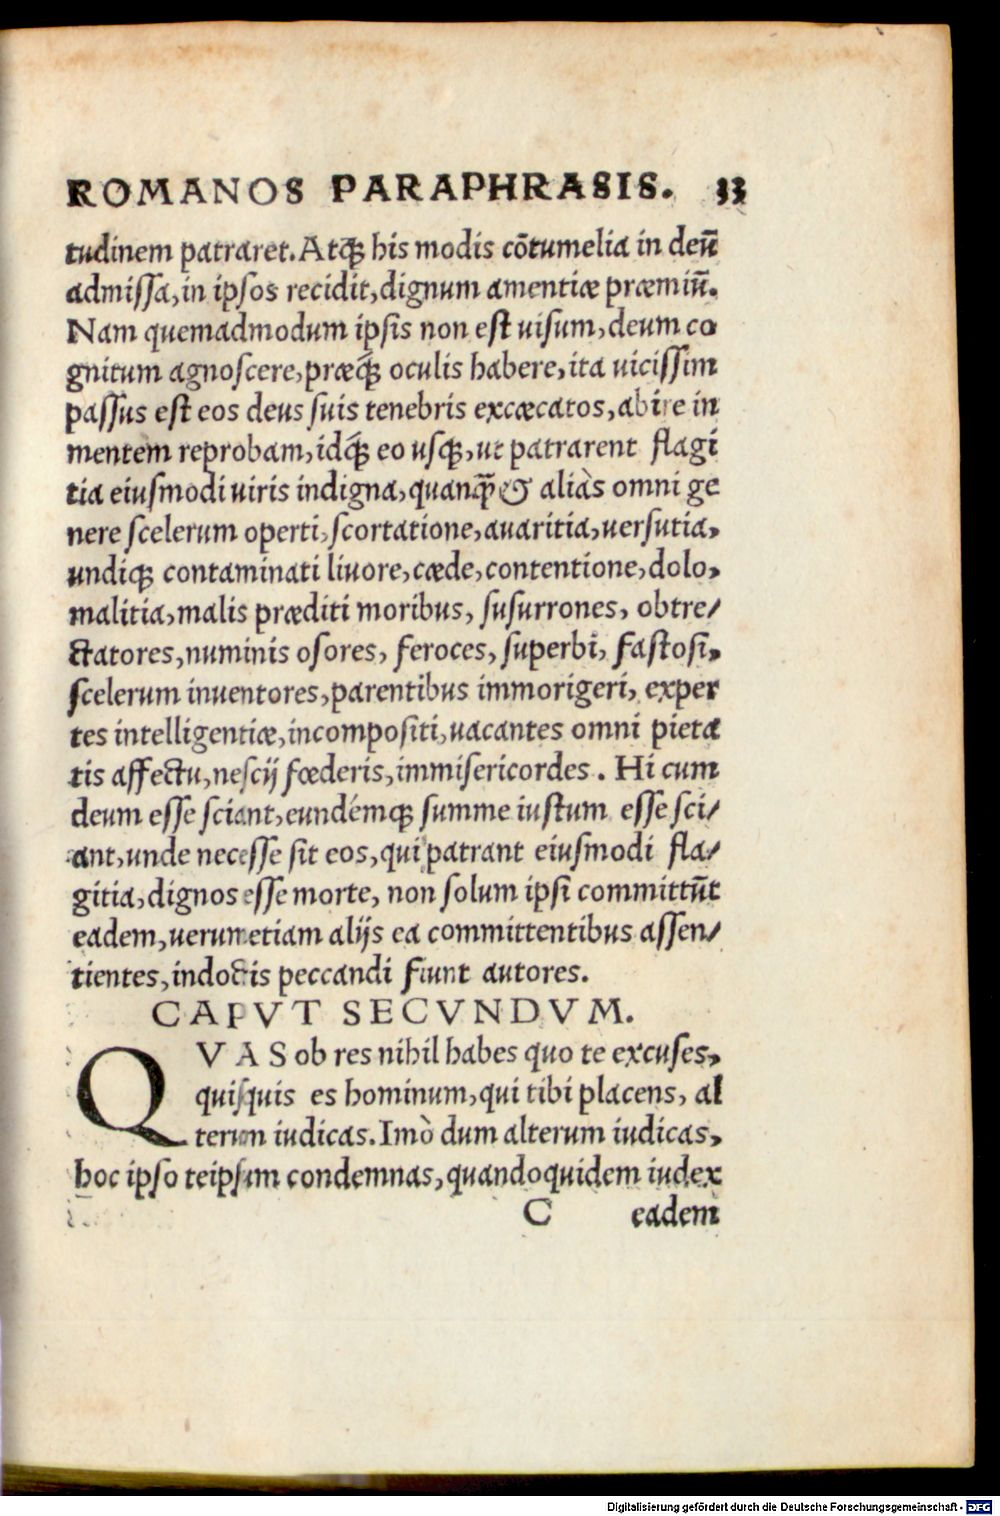 ROMANOS PARAPHRASIS. 33
tudinem patraret. Atq́ꝫ his modis cōtumelia in deū
admissa, in ipsos recidit, dignum amentiæ præmiū.
Nam quemadmodum ipsis non est uisum, deum co
gnitum agnoscere, præq́ꝫ oculis habere, ita uicissim
passus est eos deus suis tenebris excæcatos, abire in
mentem reprobam, idq́ꝫ eo usqꝫ, ut patrarent flagi
tia eiusmodi uiris indigna, quanꝗ̃ & aliàs omni ge
nere scelerum operti, scortatione, auaritia, uersutia,
undiqꝫ contaminati liuore, cæde, contentione, dolo,
malitia, malis præditi moribus, susurrones, obtre/
ctatores, numinis osores, feroces, superbi, fastosi,
scelerum inuentores, parentibus immorigeri, exper
tes intelligentiæ, incompositi, uacantes omni pieta
tis affectu, nescij fœderis, immisericordes. Hi cum
deum esse sciant, eundémqꝫ summe iustum esse sci/
ant, unde necesse sit eos, qui patrant eiusmodi fla/
gitia, dignos esse morte, non solum ipsi committūt
eadem, uerumetiam alijs ea committentibus assen/
tientes, indoctis peccandi fiunt autores.
CAPVT SECVNDVM.
QVAS ob res nihil habes quo te excuses,
quisquis es hominum, qui tibi placens, al
terum iudicas. Imò dum alterum iudicas,
hoc ipso teipsum condemnas, quandoquidem iudex
C eadem
Digitalisierung gefördert durch die Deutsche Forschungsgemeinschaft - DFG